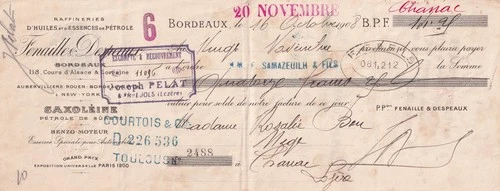 RAFFINERIES
D'HUILES & ESSENCES DE PÉTROLE
Fenaille & Despeaux
BORDEAUX
118, Cours d'Alsace & Lorraine
AUBERVILLIERS ROUEN
NEW-YORK
SAXOLÉINE
PÉTROLE DE
BENZO-MOTEUR
Essence Spéciale pour Automobiles
GRAND PRIX
EXPOSITION UNIVERSELLE PARIS 1900
6
20 NOVEMBRE
Chanac
BORDEAUX, le 16 Octobre 08 B.P.F.
Au Vingt Novembre prochain, vous plaira payer
à l'ordre M. F. SAMAZEUILH & FILS la Somme
081212
de Quarante francs
valeur pour solde de notre facture de ce jour.
P.P. FENAILLE & DESPEAUX
ESCOMPTE & RECOUVREMENT
11096
Joseph PELAT
MARVEJOLS (Lozère)
COURTOIS & C
D 226,536
TOULOUSE
N° 2488
Madame Rozalie Bon
Nég
Chanac
Lozère